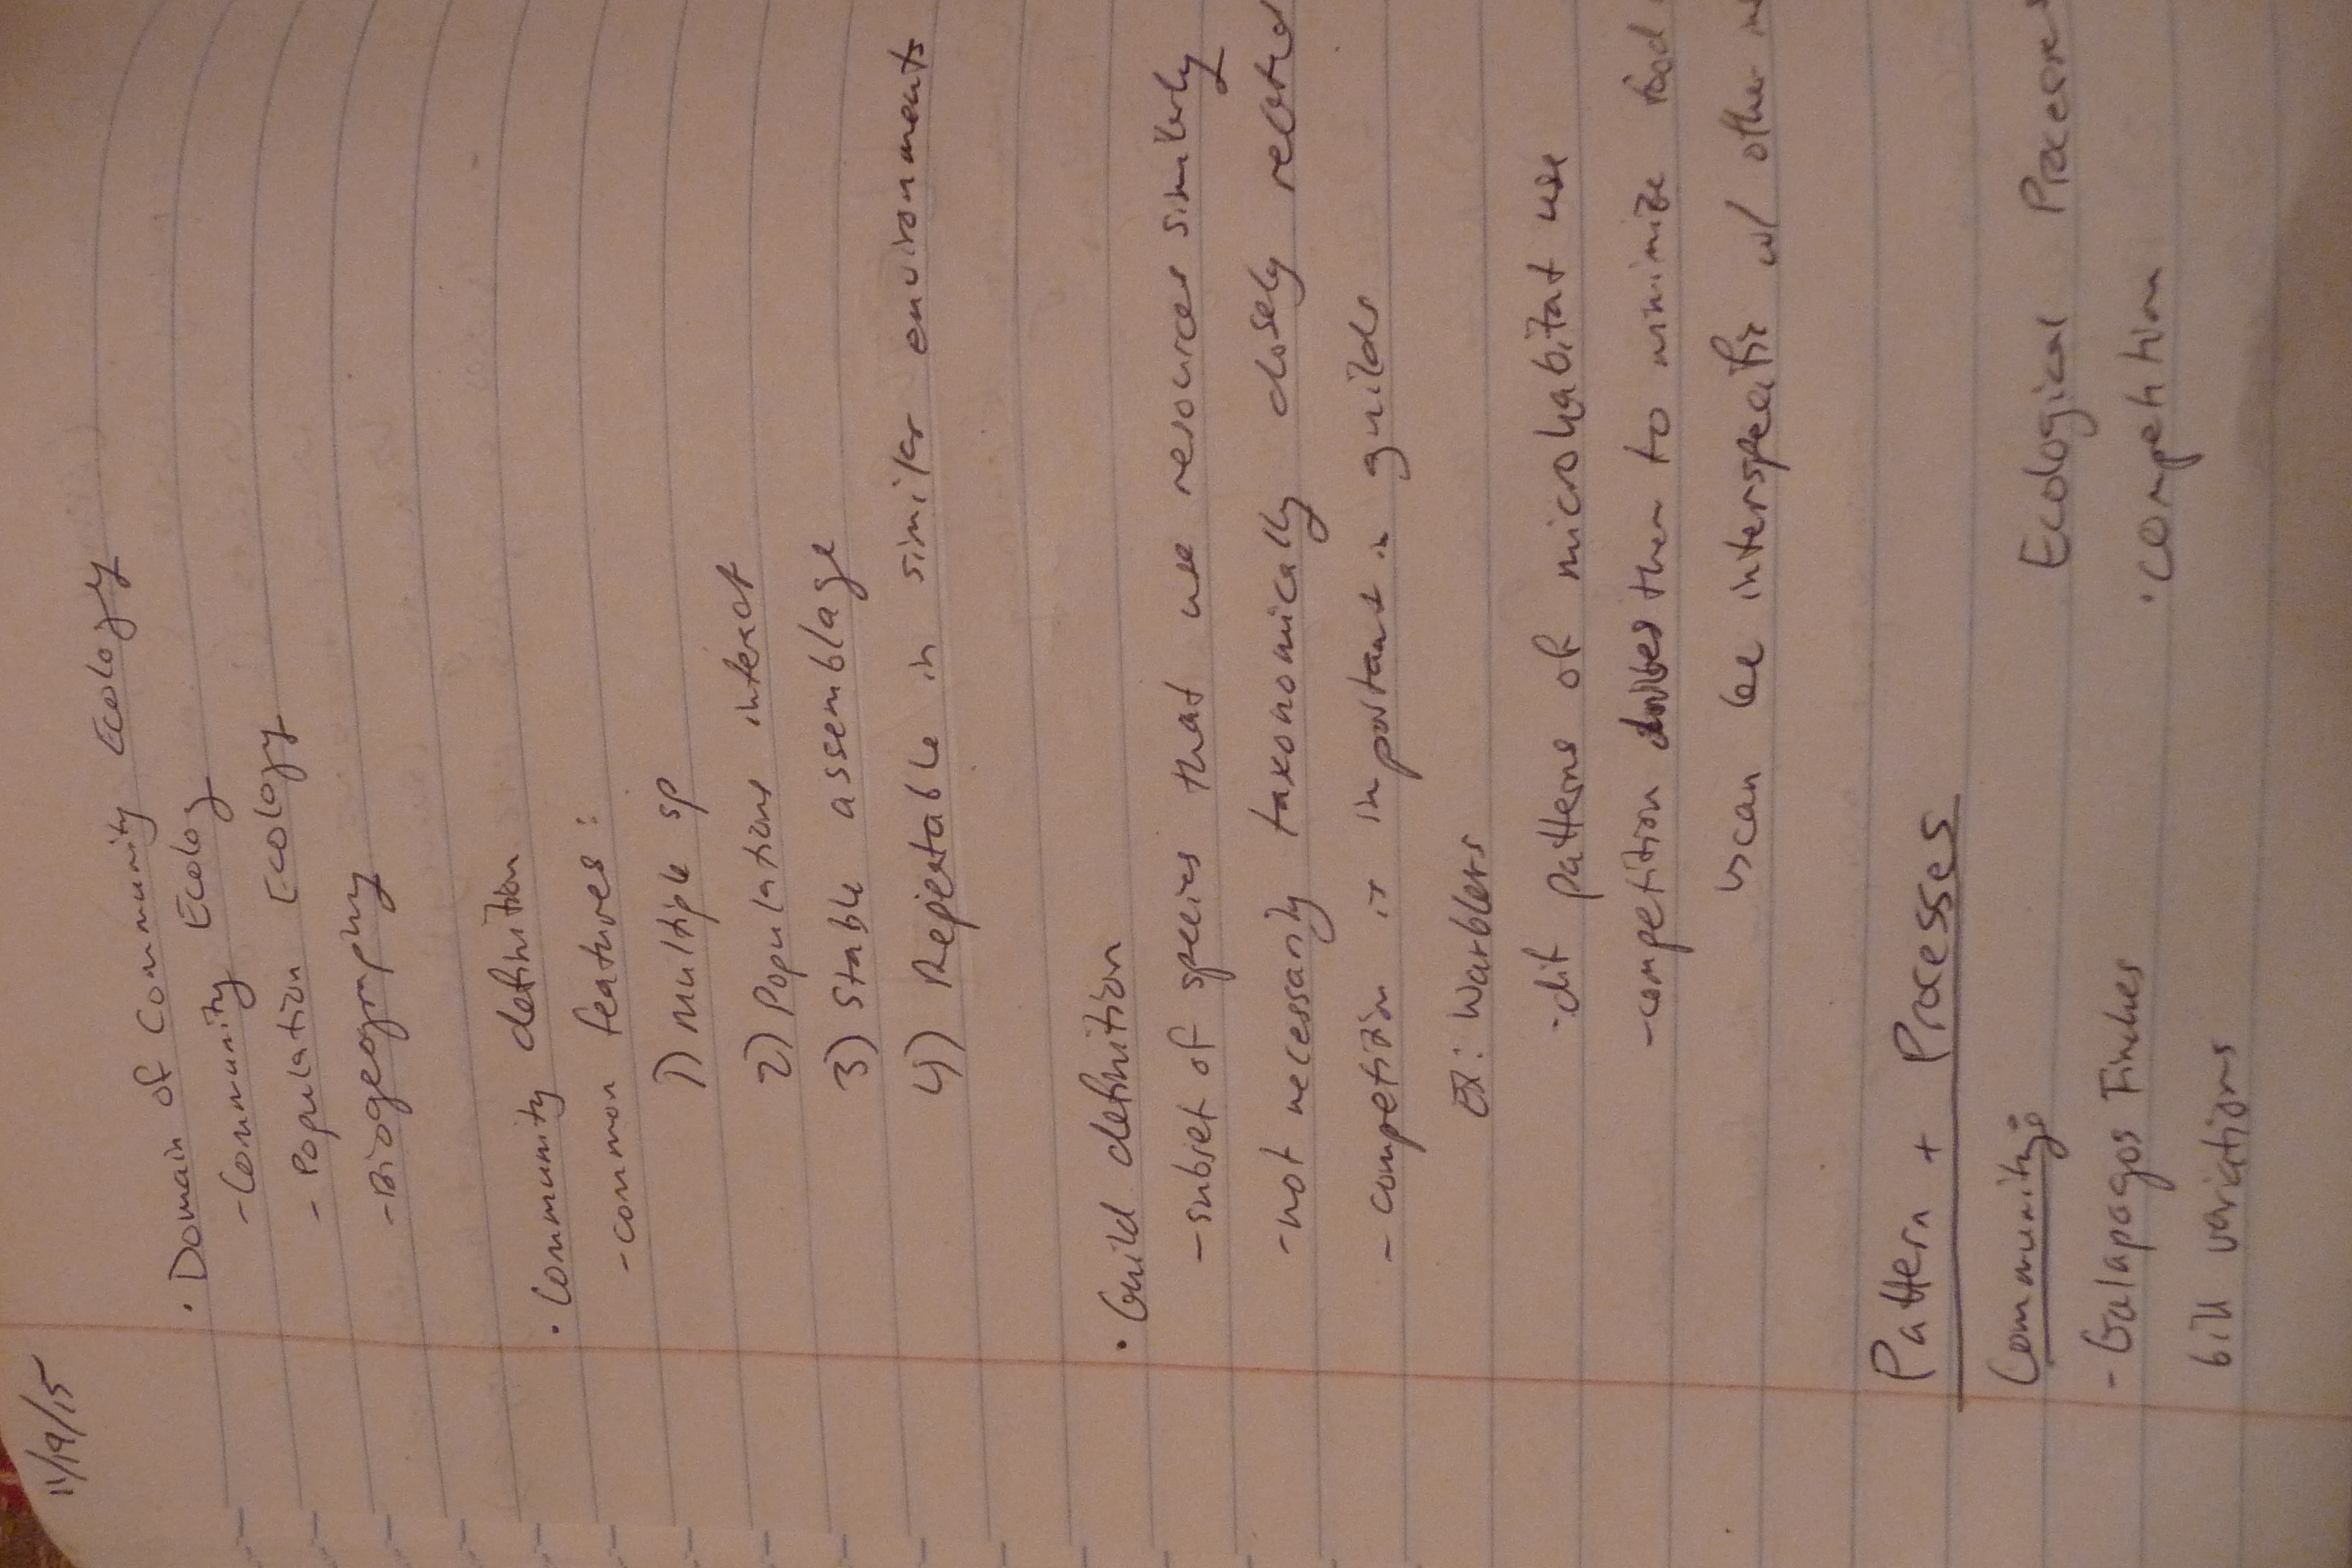 11/19/15
• Domain of Community Ecology
- Community Ecology
- Population Ecology
- Biogeography
• Community definition
- common features:
1) multiple sp
2) Populations interact
3) Stable assemblage
4) Repeatable in similar environments
• Guild definition
- subset of species that use resources similarly
- not necessarily taxonomically closely related
- competition is important in guilds
Ex: Warblers
- dif patterns of microhabitat use
- competition them to minimize food
↳ can be interspecific w/ other
Pattern + Processes
Community: Ecological Processes
- Galapagos Finches • competition
bill variations